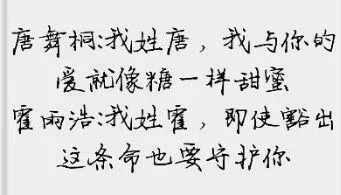 唐舞桐:我姓唐，我与你的
爱就像糖一样甜蜜
霍雨浩:我姓霍，即使豁出
这条命也要守护你